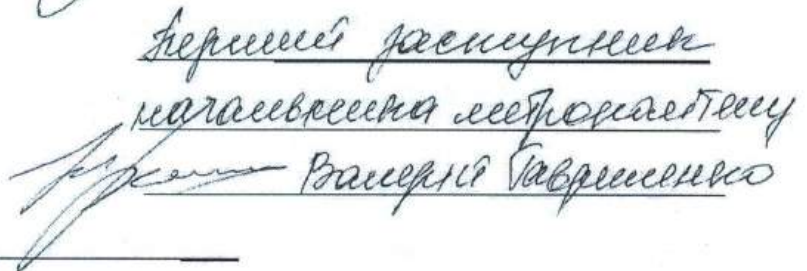 Перший заступник
начальника метрополітену
Валерій Гавриленко